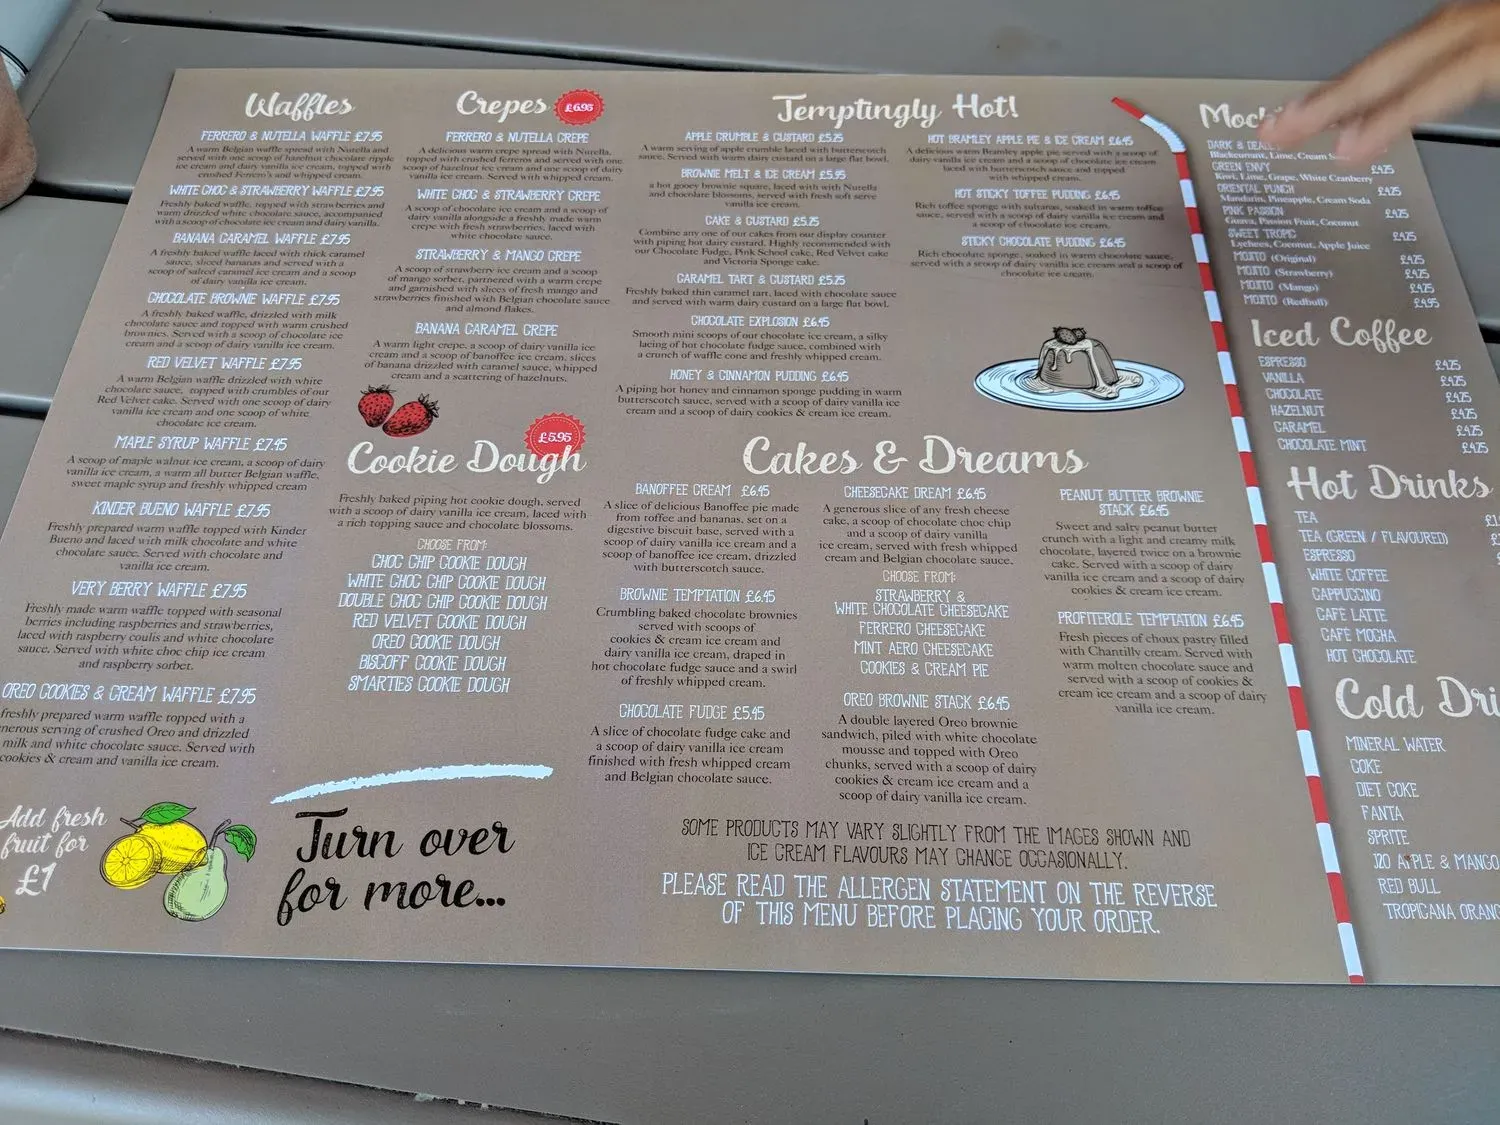 Waffles
FERRERO & NUTELLA WAFFLE £7.95
A warm Belgian waffle spread with Nutella and
served with one scoop of hazelnut chocolate ripple
ice cream and dairy vanilla ice cream, topped with
crushed Ferrero's and whipped cream.
WHITE CHOC & STRAWBERRY WAFFLE £7.95
Freshly baked waffle, topped with strawberries and
warm drizzled white chocolate sauce, accompanied
with a scoop of chocolate ice cream and dairy vanilla.
BANANA CARAMEL WAFFLE £7.95
A freshly baked waffle laced with thick caramel
sauce, sliced bananas and served with a
scoop of salted caramel ice cream and a scoop
of dairy vanilla ice cream.
CHOCOLATE BROWNIE WAFFLE £7.95
A freshly baked waffle, drizzled with milk
chocolate sauce and topped with warm crushed
brownies. Served with a scoop of chocolate ice
cream and a scoop of dairy vanilla ice cream.
RED VELVET WAFFLE £7.95
A warm Belgian waffle drizzled with white
chocolate sauce, topped with crumbles of our
Red Velvet cake. Served with one scoop of dairy
vanilla ice cream and one scoop of white
chocolate ice cream.
MAPLE SYRUP WAFFLE £7.45
A scoop of maple walnut ice cream, a scoop of dairy
vanilla ice cream, a warm all butter Belgian waffle,
sweet maple syrup and freshly whipped cream
KINDER BUENO WAFFLE £7.95
Freshly prepared warm waffle topped with Kinder
Bueno and laced with milk chocolate and white
chocolate sauce. Served with chocolate and
vanilla ice cream.
VERY BERRY WAFFLE £7.95
Freshly made warm waffle topped with seasonal
berries including raspberries and strawberries,
laced with raspberry coulis and white chocolate
sauce. Served with white choc chip ice cream
and raspberry sorbet.
OREO COOKIES & CREAM WAFFLE £7.95
freshly prepared warm waffle topped with a
nerous serving of crushed Oreo and drizzled
milk and white chocolate sauce. Served with
cookies & cream and vanilla ice cream.
Add fresh
fruit for
£1
Crepes £6.95
FERRERO & NUTELLA CREPE
A delicious warm crepe spread with Nutella,
topped with crushed ferreros and served with one
scoop of hazelnut ice cream and one scoop of dairy
vanilla ice cream. Served with whipped cream.
WHITE CHOC & STRAWBERRY CREPE
A scoop of chocolate ice cream and a scoop of
dairy vanilla alongside a freshly made warm
crepe with fresh strawberries, laced with
white chocolate sauce.
STRAWBERRY & MANGO CREPE
A scoop of strawberry ice cream and a scoop
of mango sorbet, partnered with a warm crepe
and garnished with slices of fresh mango and
strawberries finished with Belgian chocolate sauce
and almond flakes.
BANANA CARAMEL CREPE
A warm light crepe, a scoop of dairy vanilla ice
cream and a scoop of banoffee ice cream, slices
of banana drizzled with caramel sauce, whipped
cream and a scattering of hazelnuts.
£5.95
Cookie Dough
Freshly baked piping hot cookie dough, served
with a scoop of dairy vanilla ice cream, laced with
a rich topping sauce and chocolate blossoms.
CHOOSE FROM:
CHOC CHIP COOKIE DOUGH
WHITE CHOC CHIP COOKIE DOUGH
DOUBLE CHOC CHIP COOKIE DOUGH
RED VELVET COOKIE DOUGH
OREO COOKIE DOUGH
BISCOFF COOKIE DOUGH
SMARTIES COOKIE DOUGH
Turn over
for more...
Temptingly Hot!
APPLE CRUMBLE & CUSTARD £5.25
A warm serving of apple crumble laced with butterscotch
sauce. Served with warm dairy custard on a large flat bowl.
BROWNIE MELT & ICE CREAM £5.95
a hot gooey brownie square, laced with with Nutella
and chocolate blossoms, served with fresh soft serve
vanilla ice cream.
CAKE & CUSTARD £5.25
Combine any one of our cakes from our display counter
with piping hot dairy custard. Highly recommended with
our Chocolate Fudge, Pink School cake, Red Velvet cake
and Victoria Sponge cake.
CARAMEL TART & CUSTARD £5.25
Freshly baked thin caramel tart, laced with chocolate sauce
and served with warm dairy custard on a large flat bowl.
CHOCOLATE EXPLOSION £6.45
Smooth mini scoops of our chocolate ice cream, a silky
lacing of hot chocolate fudge sauce, combined with
a crunch of waffle cone and freshly whipped cream.
HONEY & CINNAMON PUDDING £6.45
A piping hot honey and cinnamon sponge pudding in warm
butterscotch sauce, served with a scoop of dairy vanilla ice
cream and a scoop of dairy cookies & cream ice cream.
HOT BRAMLEY APPLE PIE & ICE CREAM £6.45
A delicious warm Bramley apple pie, served with a scoop of
dairy vanilla ice cream and a scoop of chocolate ice cream
laced with butterscotch sauce and topped
with whipped cream.
HOT STICKY TOFFEE PUDDING £6.45
Rich toffee sponge with sultanas, soaked in warm toffee
sauce, served with a scoop of dairy vanilla ice cream and
a scoop of chocolate ice cream.
STICKY CHOCOLATE PUDDING £6.45
Rich chocolate sponge, soaked in warm chocolate sauce,
served with a scoop of dairy vanilla ice cream and a scoop of
chocolate ice cream.
Cakes & Dreams
BANOFFEE CREAM £6.45
A slice of delicious Banoffee pie made
from toffee and bananas, set on a
digestive biscuit base, served with a
scoop of dairy vanilla ice cream and a
scoop of banoffee ice cream, drizzled
with butterscotch sauce.
BROWNIE TEMPTATION £6.45
Crumbling baked chocolate brownies
served with scoops of
cookies & cream ice cream and
dairy vanilla ice cream, draped in
hot chocolate fudge sauce and a swirl
of freshly whipped cream.
CHOCOLATE FUDGE £5.45
A slice of chocolate fudge cake and
a scoop of dairy vanilla ice cream
finished with fresh whipped cream
and Belgian chocolate sauce.
CHEESECAKE DREAM £6.45
A generous slice of any fresh cheese
cake, a scoop of chocolate choc chip
and a scoop of dairy vanilla
ice cream, served with fresh whipped
cream and Belgian chocolate sauce.
CHOOSE FROM:
STRAWBERRY &
WHITE CHOCOLATE CHEESECAKE
FERRERO CHEESECAKE
MINT AERO CHEESECAKE
COOKIES & CREAM PIE
OREO BROWNIE STACK £6.45
A double layered Oreo brownie
sandwich, piled with white chocolate
mousse and topped with Oreo
chunks, served with a scoop of dairy
cookies & cream ice cream and a
scoop of dairy vanilla ice cream.
PEANUT BUTTER BROWNIE
STACK £6.45
Sweet and salty peanut butter
crunch with a light and creamy milk
chocolate, layered twice on a brownie
cake. Served with a scoop of dairy
vanilla ice cream and a scoop of dairy
cookies & cream ice cream.
PROFITEROLE TEMPTATION £6.45
Fresh pieces of choux pastry filled
with Chantilly cream. Served with
warm molten chocolate sauce and
served with a scoop of cookies &
cream ice cream and a scoop of dairy
vanilla ice cream.
SOME PRODUCTS MAY VARY SLIGHTLY FROM THE IMAGES SHOWN AND
ICE CREAM FLAVOURS MAY CHANGE OCCASIONALLY.
PLEASE READ THE ALLERGEN STATEMENT ON THE REVERSE
OF THIS MENU BEFORE PLACING YOUR ORDER.
Mock
DARK & DEADLY
Blackcurrant, Lime, Cream
GREEN ENVY £4.25
Kiwi, Lime, Grape, White Cranberry
ORIENTAL PUNCH £4.25
Mandarin, Pineapple, Cream Soda
PINK PASSION £4.25
Guava, Passion Fruit, Coconut
SWEET TROPIC £4.25
Lychees, Coconut, Apple Juice
MOJITO (Original) £4.25
MOJITO (Strawberry) £4.25
MOJITO (Mango) £4.25
MOJITO (Redbull) £4.95
Iced Coffee
ESPRESSO £4.25
VANILLA £4.25
CHOCOLATE £4.25
HAZELNUT £4.25
CARAMEL £4.25
CHOCOLATE MINT £4.25
Hot Drinks
TEA £1
TEA (GREEN / FLAVOURED)
ESPRESSO
WHITE COFFEE
CAPPUCCINO
CAFE LATTE
CAFE MOCHA
HOT CHOCOLATE
Cold Dri
MINERAL WATER
COKE
DIET COKE
FANTA
SPRITE
J20 APPLE & MANGO
RED BULL
TROPICANA ORANG